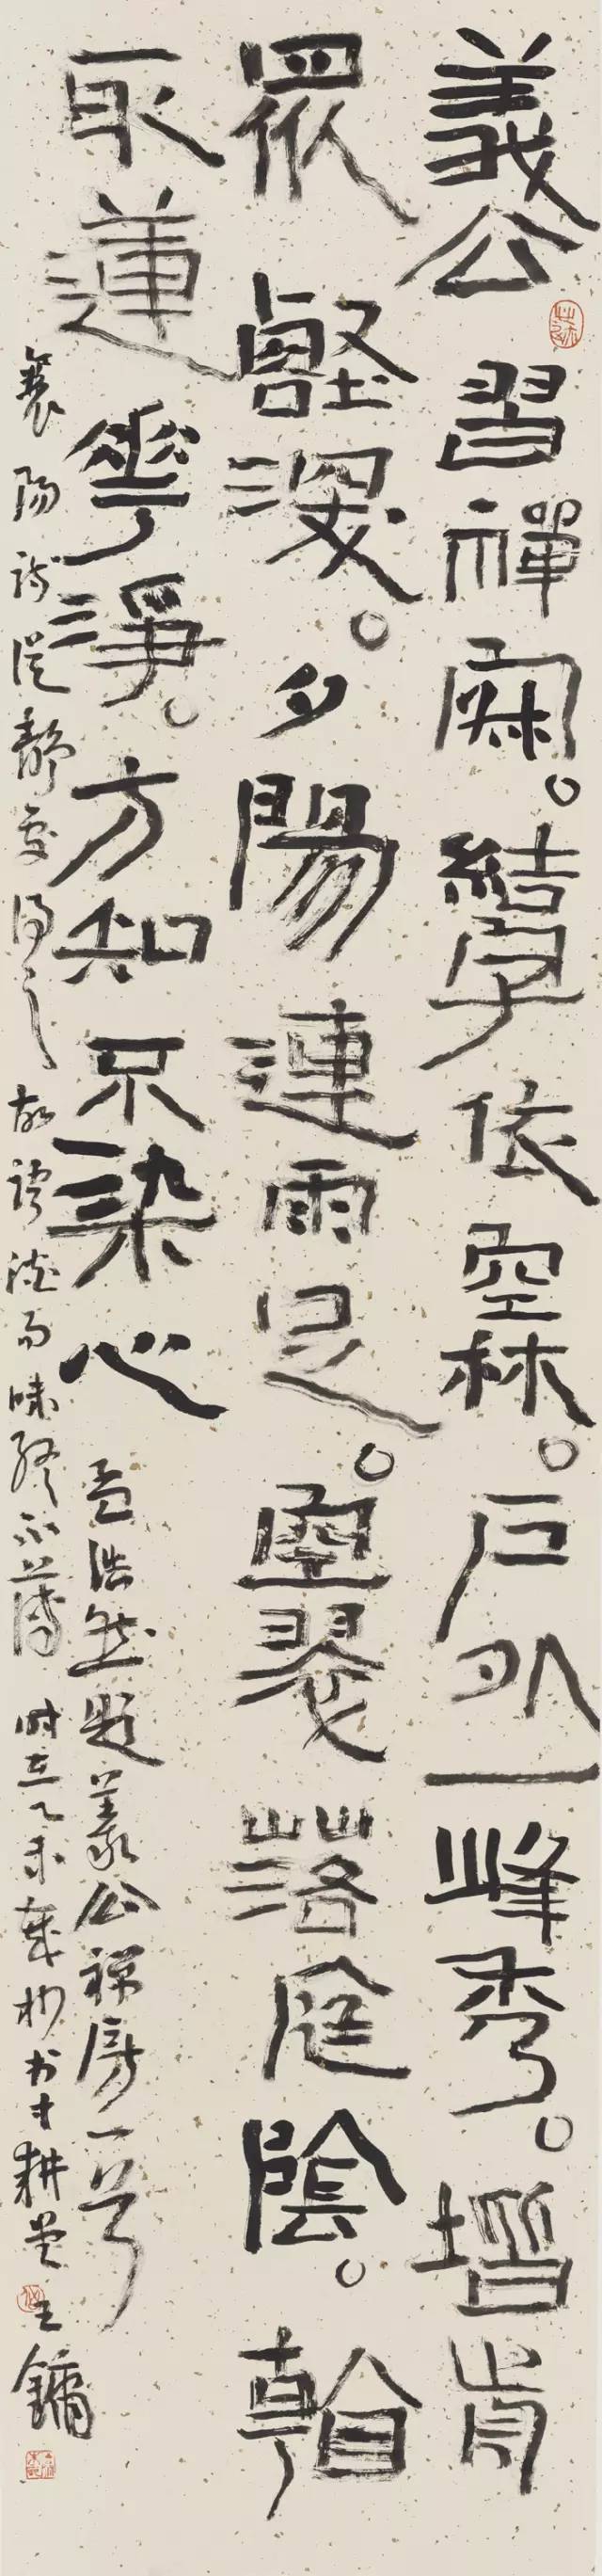 義公習禪寂。結宇依空林。戶外一峰秀。階前
眾壑深。夕陽連雨足。空翠落庭陰。看
取蓮華淨。方知不染心 孟浩然題義公禪房一首
襄陽詩從靜處得之故語淡而味終不薄 時在乙未歲杪書于耕堂 王鏞